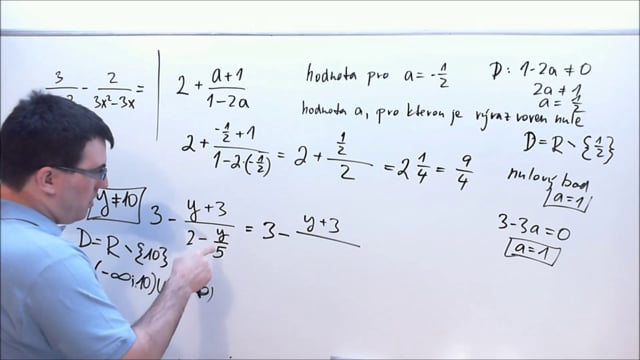 3/ - 2/(3x²-3x) =
2 + (a+1)/(1-2a)
hodnota pro a = -1/2
D: 1-2a ≠ 0
2a ≠ 1
a = 1/2
hodnota a, pro kterou je výraz roven nule
D = R \ {1/2}
2 + (-1/2 + 1)/(1-2·(-1/2)) = 2 + (1/2)/2 = 2 1/4 = 9/4
nulový bod
a = 1
3-3a = 0
a = 1
y ≠ 10
3 - (y+3)/(2 - y/5) = 3 - (y+3)/
D = R \ {10}
(-∞; 10) ∪